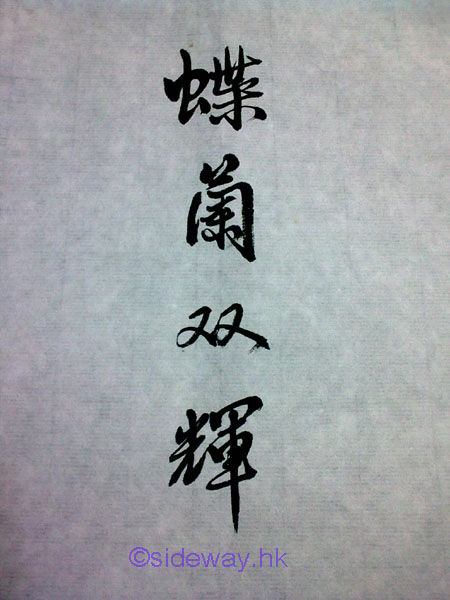 蝶蘭双輝
©sideway.hk